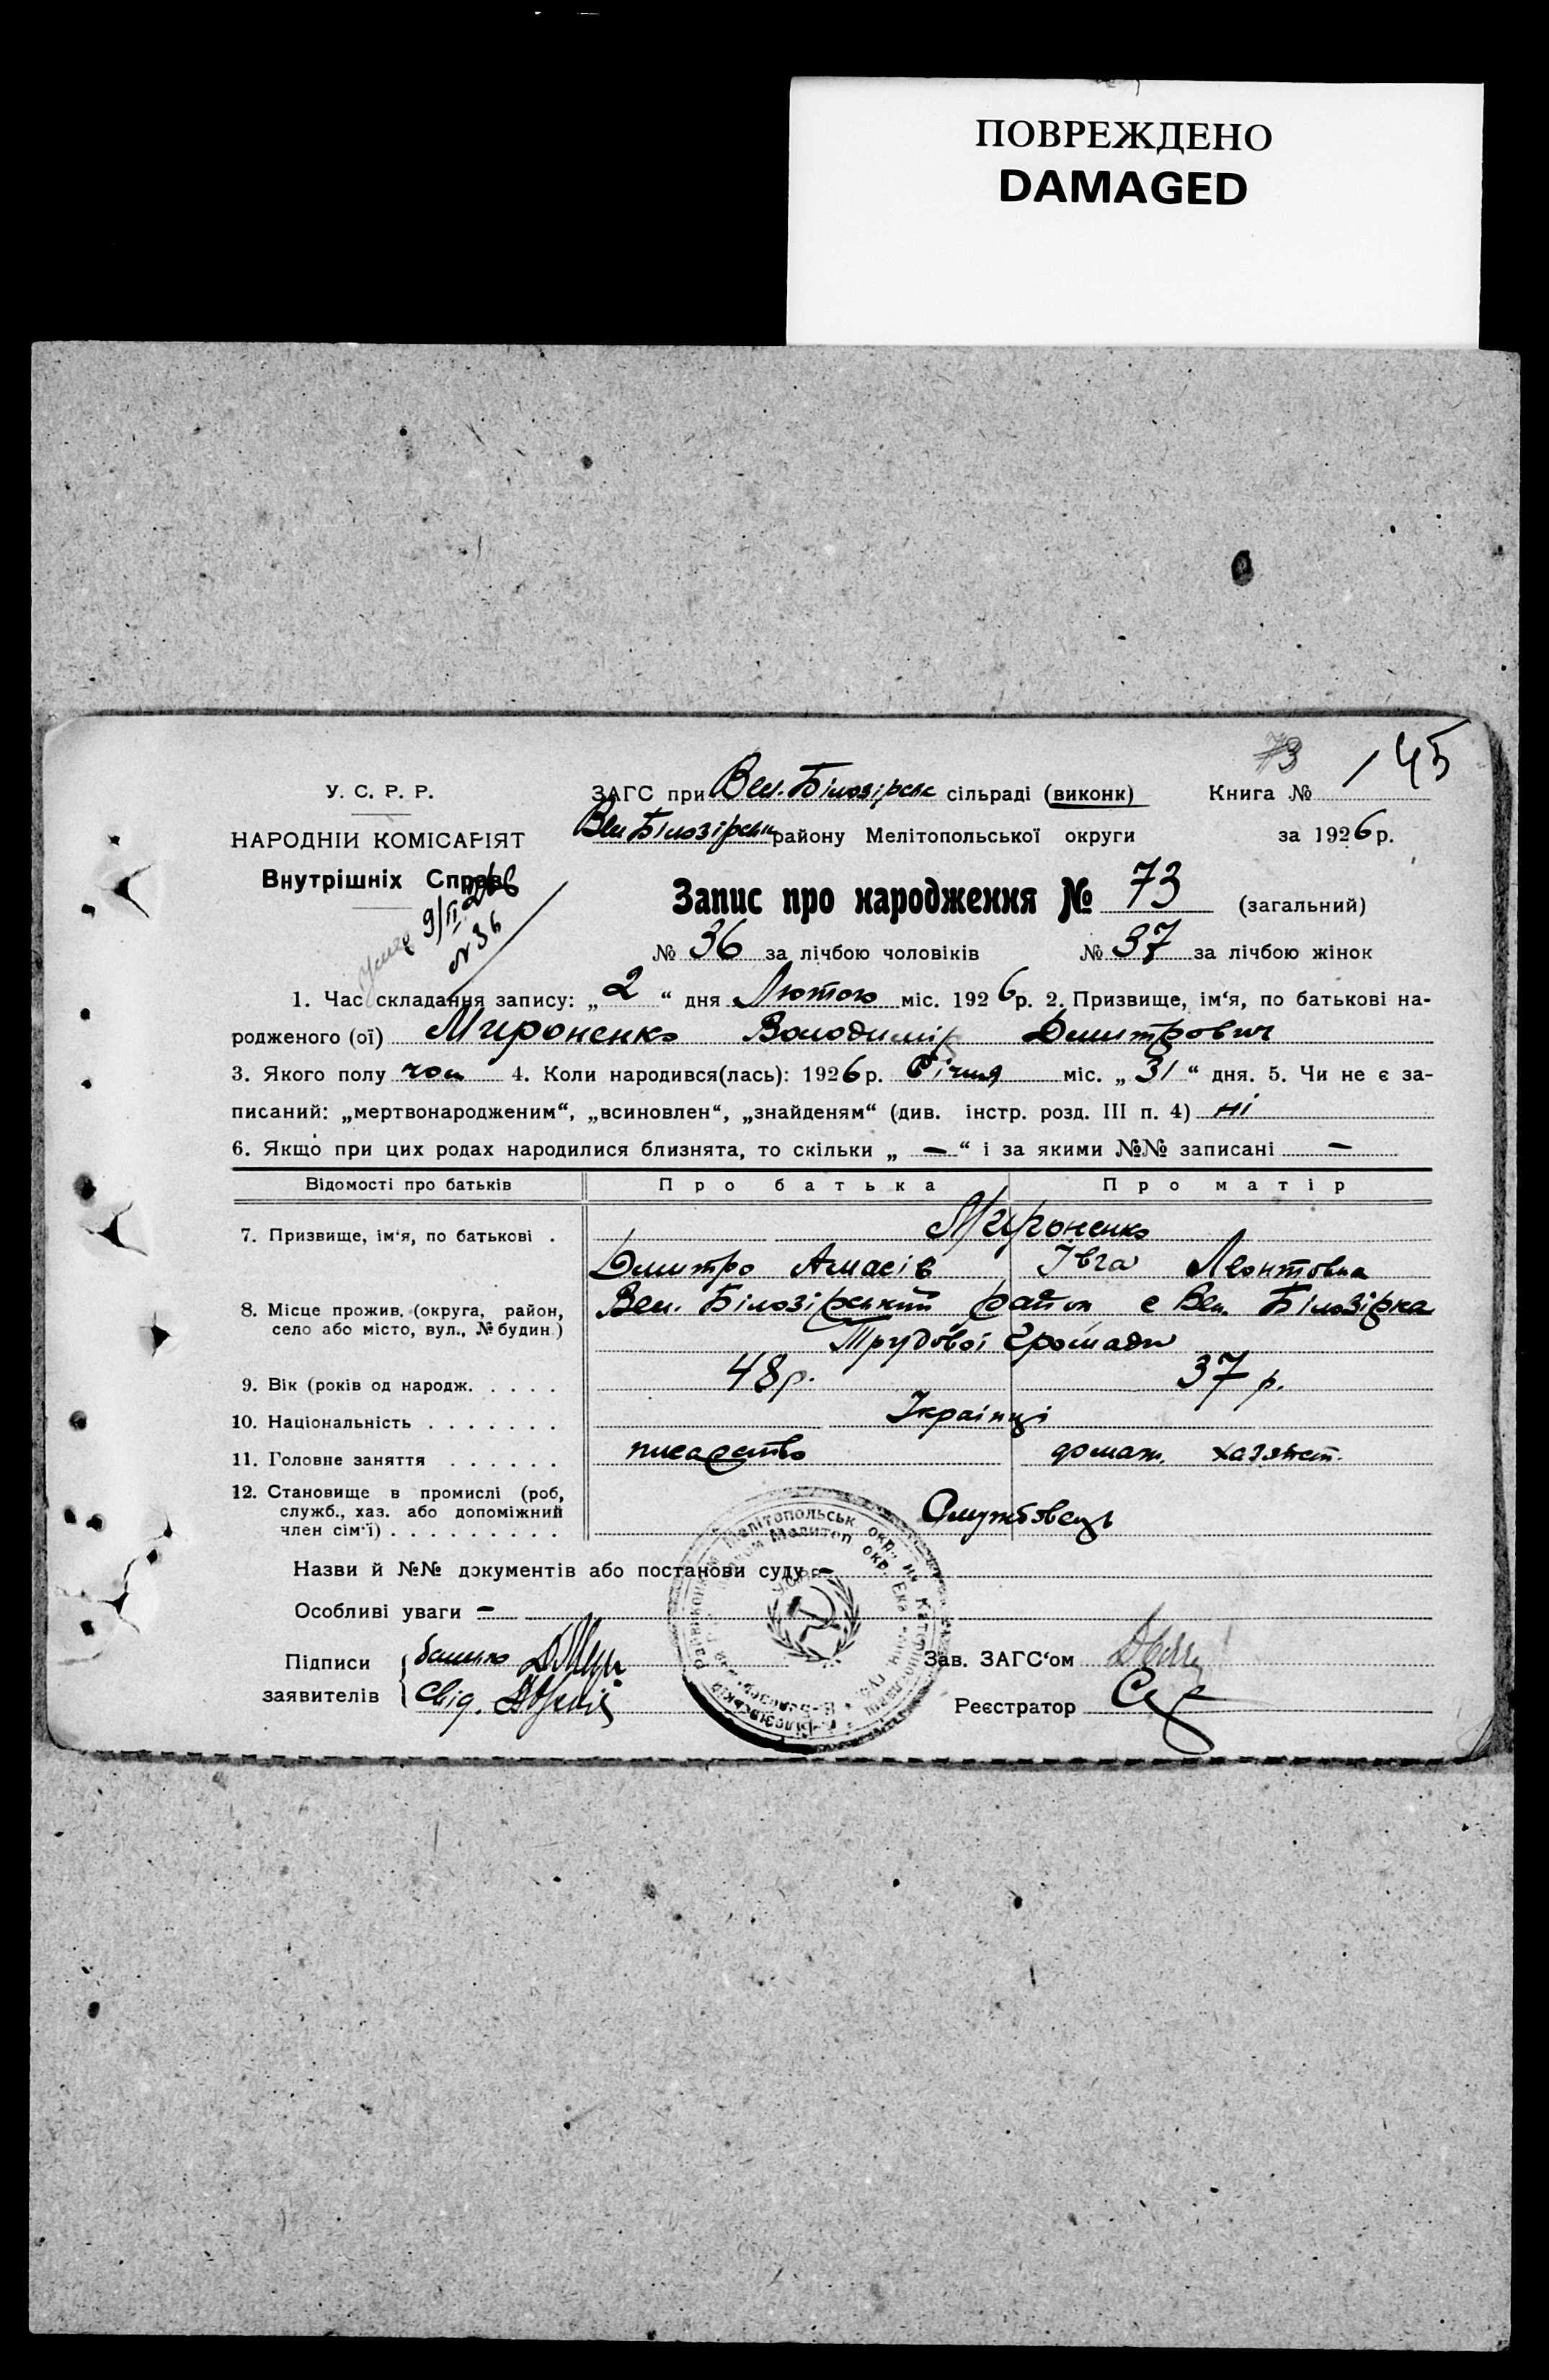 ПОВРЕЖДЕНО
DAMAGED
73 145
У. С. Р. Р.
НАРОДНІЙ КОМІСАРІЯТ
Внутрішніх Справ
9/II 26
№ 36
ЗАГС при Вел. Білозірськ сільраді (виконк) Книга №
Вел Білозірськ району Мелітопольської округи за 1926 р.
Запис про народження № 73 (загальний)
№ 36 за лічбою чоловіків № 37 за лічбою жінок
1. Час складання запису: „ 2 “ дня Лютого міс. 1926 р. 2. Призвище, ім‘я, по батькові на-
родженого (ої) Мироненко Володимір Дмитрович
3. Якого полу чол 4. Коли народився(лась): 1926 р. Січня міс. „ 31 “ дня. 5. Чи не є за-
писаний: „мертвонародженим“, „всиновлен“, „знайденям“ (див. інстр. розд. III п. 4) ні
6. Якщо при цих родах народилися близнята, то скільки „ — “ і за якими №№ записані —
Відомості про батьків Про батька Про матір
7. Призвище, ім‘я, по батькові . Мироненко
Дмитро Амасів Івга Леонтовна
8. Місце прожив. (округа, район, Вел. Білозірський район с Вел. Білозірка
село або місто, вул., № будин.)
Трудової Громади
9. Вік (років од народж. . . . . 48 р. 37 р.
10. Національність . . . . . . . Українці
11. Головне заняття . . . . . . писарство домашн. хазяйст.
12. Становище в промислі (роб,
служб., хаз. або допоміжний
член сім‘ї) . . . . . . . . . Службовець
Назви й №№ документів або постанови суду —
Особливі уваги —
Підписи батько
заявителів свід.
Зав. ЗАГС‘ом
Реєстратор
УСРР